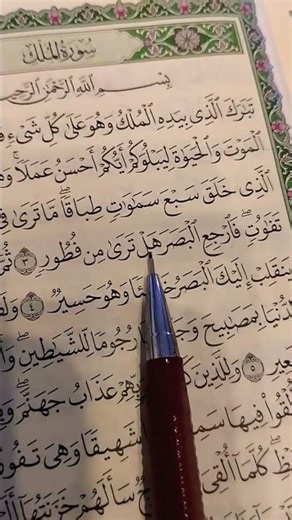 سُورَةُ المُلْكِ
بِسْمِ اللَّهِ الرَّحْمَٰنِ الرَّحِيمِ
تَبَٰرَكَ الَّذِي بِيَدِهِ الْمُلْكُ وَهُوَ عَلَىٰ كُلِّ شَيْءٍ
الْمَوْتَ وَالْحَيَوٰةَ لِيَبْلُوَكُمْ أَيُّكُمْ أَحْسَنُ عَمَلًا ۚ
الَّذِي خَلَقَ سَبْعَ سَمَٰوَٰتٍ طِبَاقًا ۖ مَّا تَرَىٰ فِي
تَفَٰوُتٍ ۖ فَارْجِعِ الْبَصَرَ هَلْ تَرَىٰ مِن فُطُورٍ ٣ ثُمَّ
يَنقَلِبْ إِلَيْكَ الْبَصَرُ وَهُوَ حَسِيرٌ ٤
الدُّنْيَا بِمَصَٰبِيحَ رُجُومًا لِّلشَّيَٰطِينِ ۖ
٥ وَلِلَّذِينَ عَذَابُ جَهَنَّمَ ۖ
أُلْقُوا فِيهَا شَهِيقًا وَهِيَ تَفُورُ
كُلَّمَا أُلْقِيَ سَأَلَهُمْ خَزَنَتُهَا